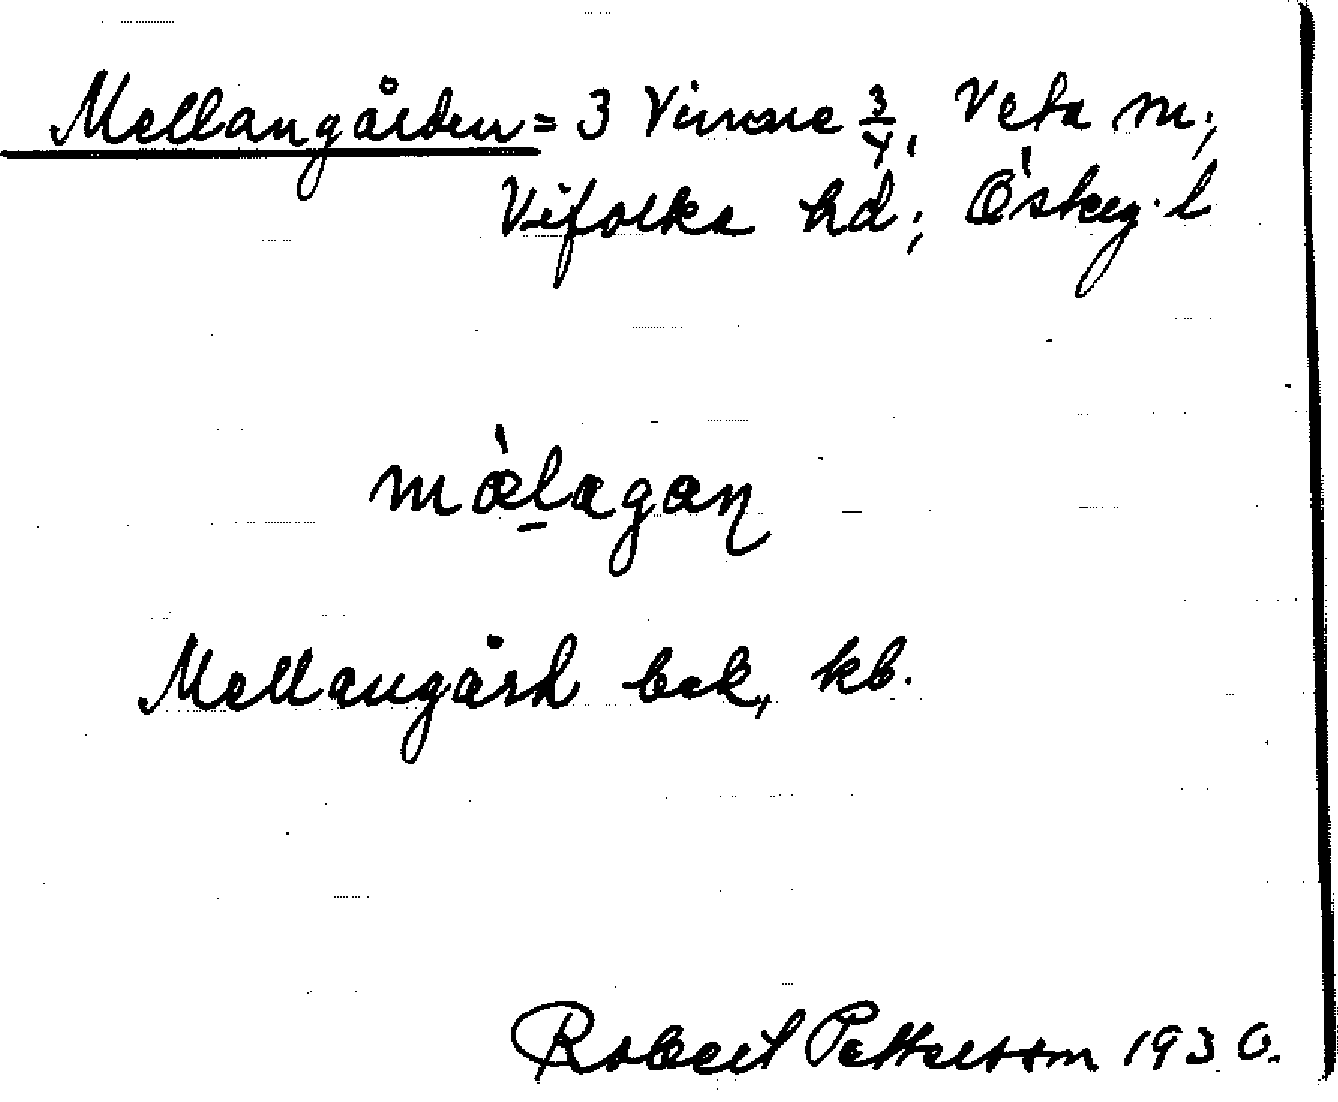 Mellangården = 3 Vinnare 3/4, Veta sn;
Vifolka hd; Österg. l
mæ̀lagaɳ
Mellangård bok, kb.
Robert Petterson 1930.